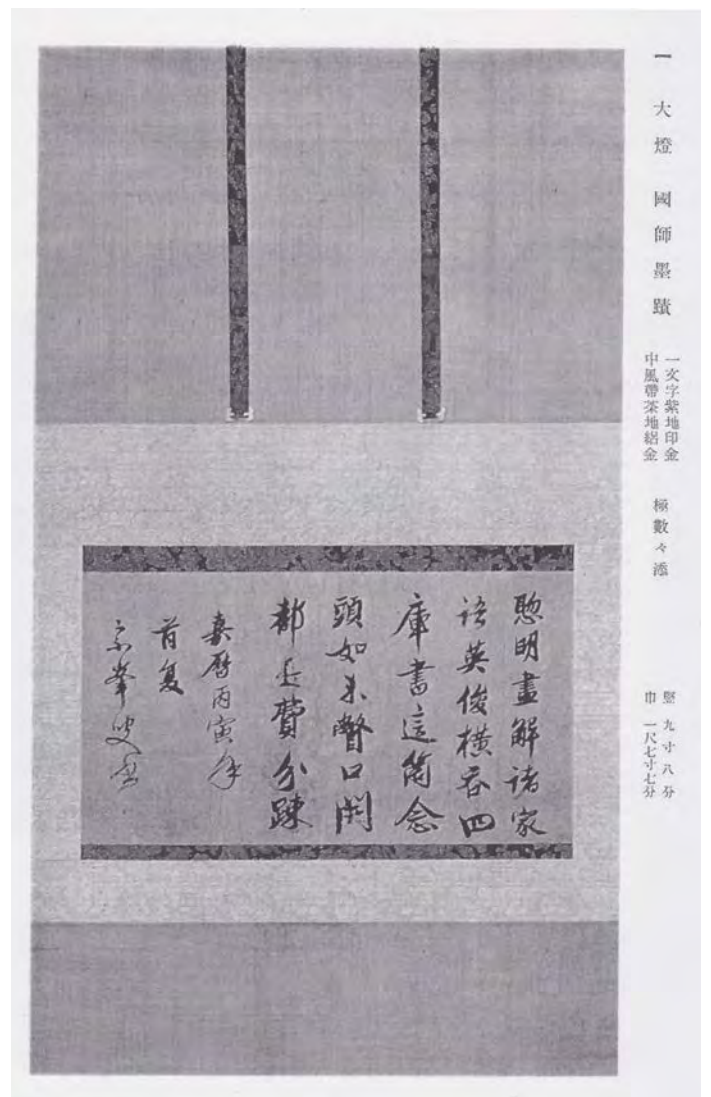 一 大燈國師墨蹟
一文字紫地印金
中風帶茶地絽金
極數々添
竪 九寸八分
巾 一尺七寸七分
聰明盡解諸家
語英俊橫吞四
庫書這箇念
頭如未瞥口開
都是費分疎
嘉曆丙寅年
首夏
宗峯叟書